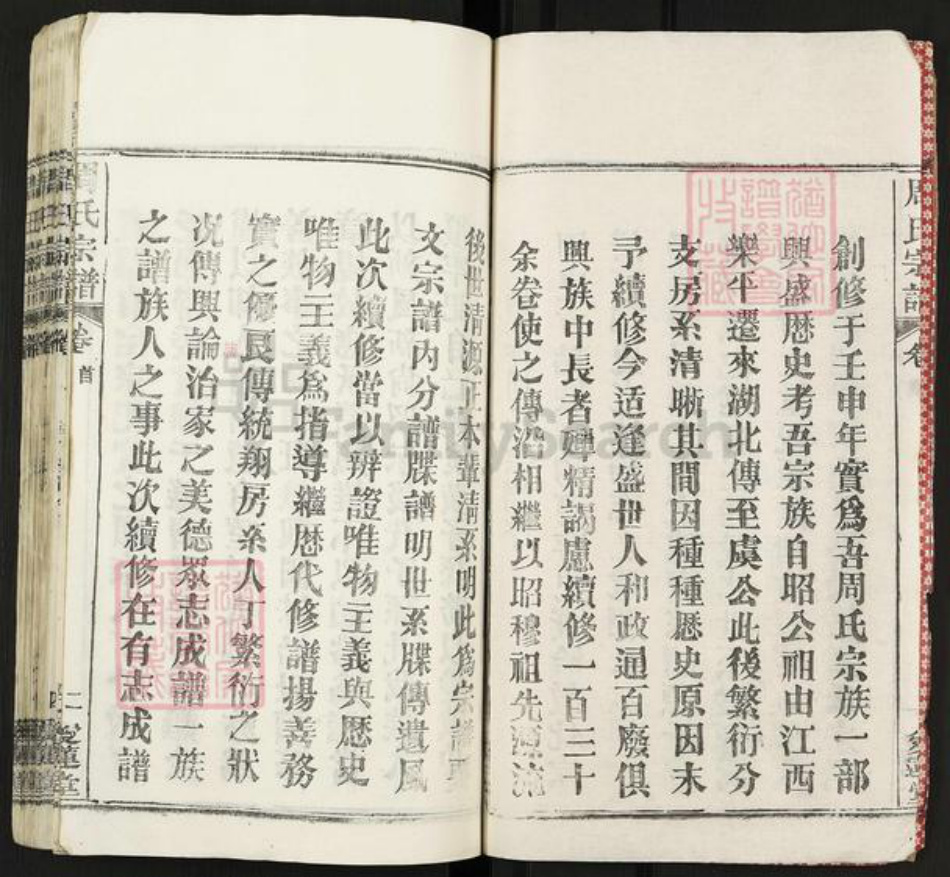 周氏宗譜
卷
創修于壬申年實為吾周氏宗族一部
興盛歷史考吾宗族自昭公祖由江西
樂平遷來湖北傳至虞公此後繁衍分
支房系清晰其間因種種歷史原因未
予續修今适逢盛世人和政通百廢俱
興族中長者殫精謁慮續修一百三十
余卷使之傳沿相繼以昭穆祖先源流
後世清源正本輩清系明此為宗譜
文宗譜内分譜牒譜明世系牒傳遺風
此次續修當以辨證唯物主義與歷史
唯物主義為指導繼歷代修譜揚善務
實之優良傳統翔房系人丁繁衍之狀
况傳興論治家之美德眾志成譜一族
之譜族人之事此次續修在有志成譜
周氏宗譜
卷首
二
愛蓮堂
FamilySearch